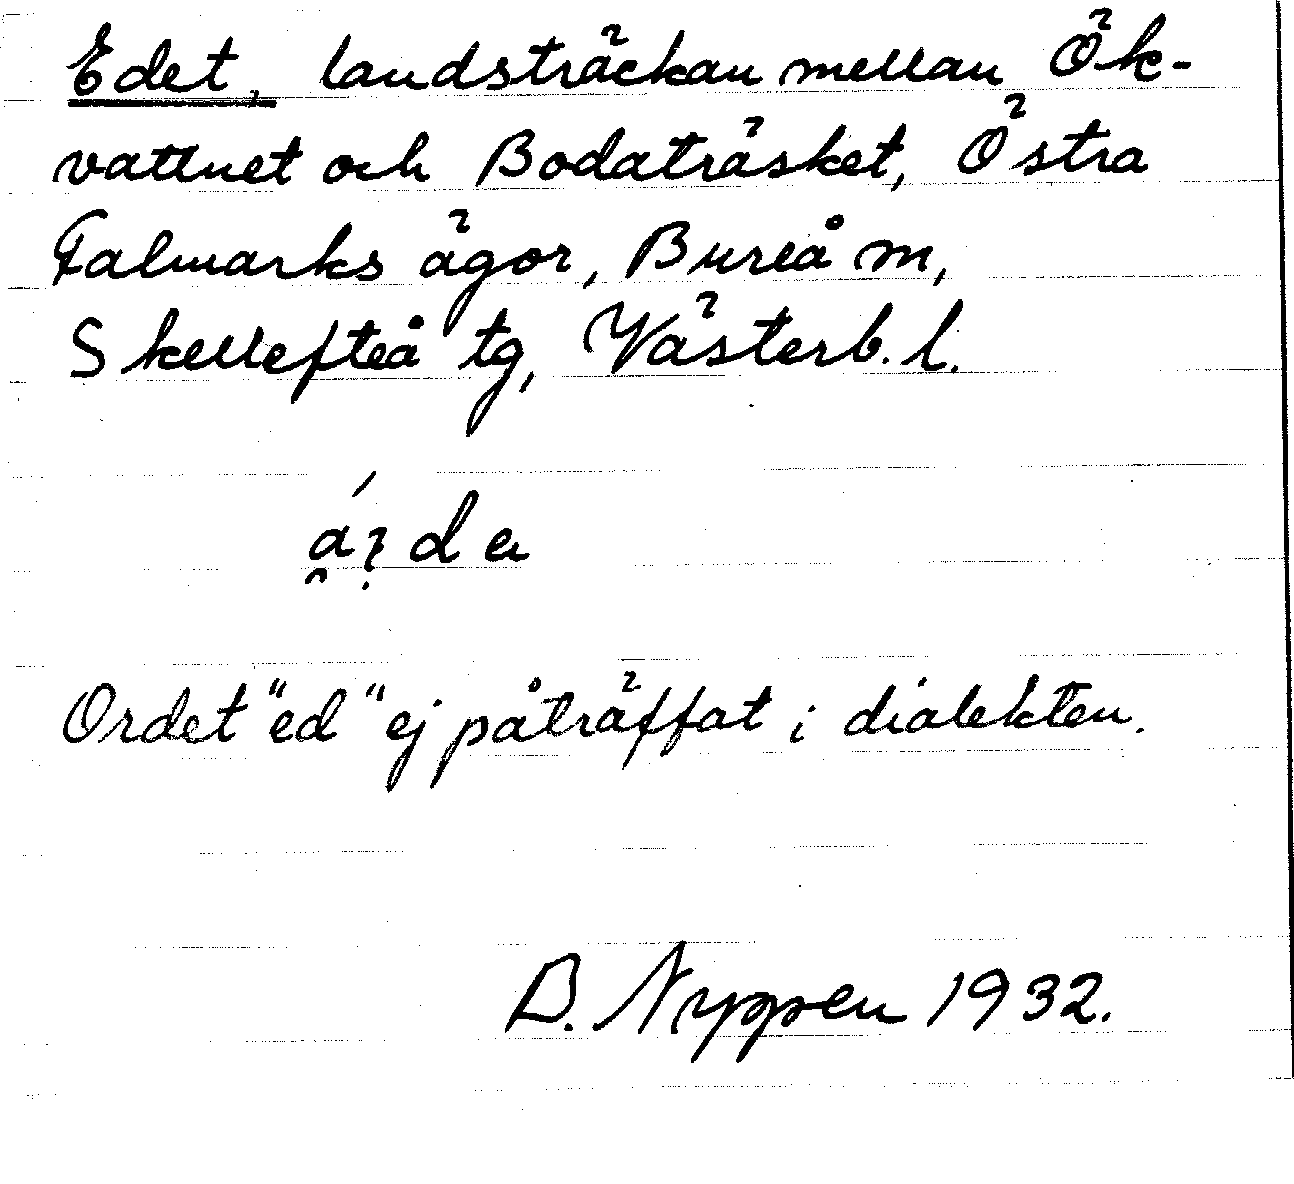 Edet, landsträckan mellan Ök-
vattnet och Bodaträsket, Östra
Falmarks ägor, Bureå m,
Skellefteå tg, Västerb. l.
Ordet "ed" ej påträffat i dialekten.
Nyppen 1932.